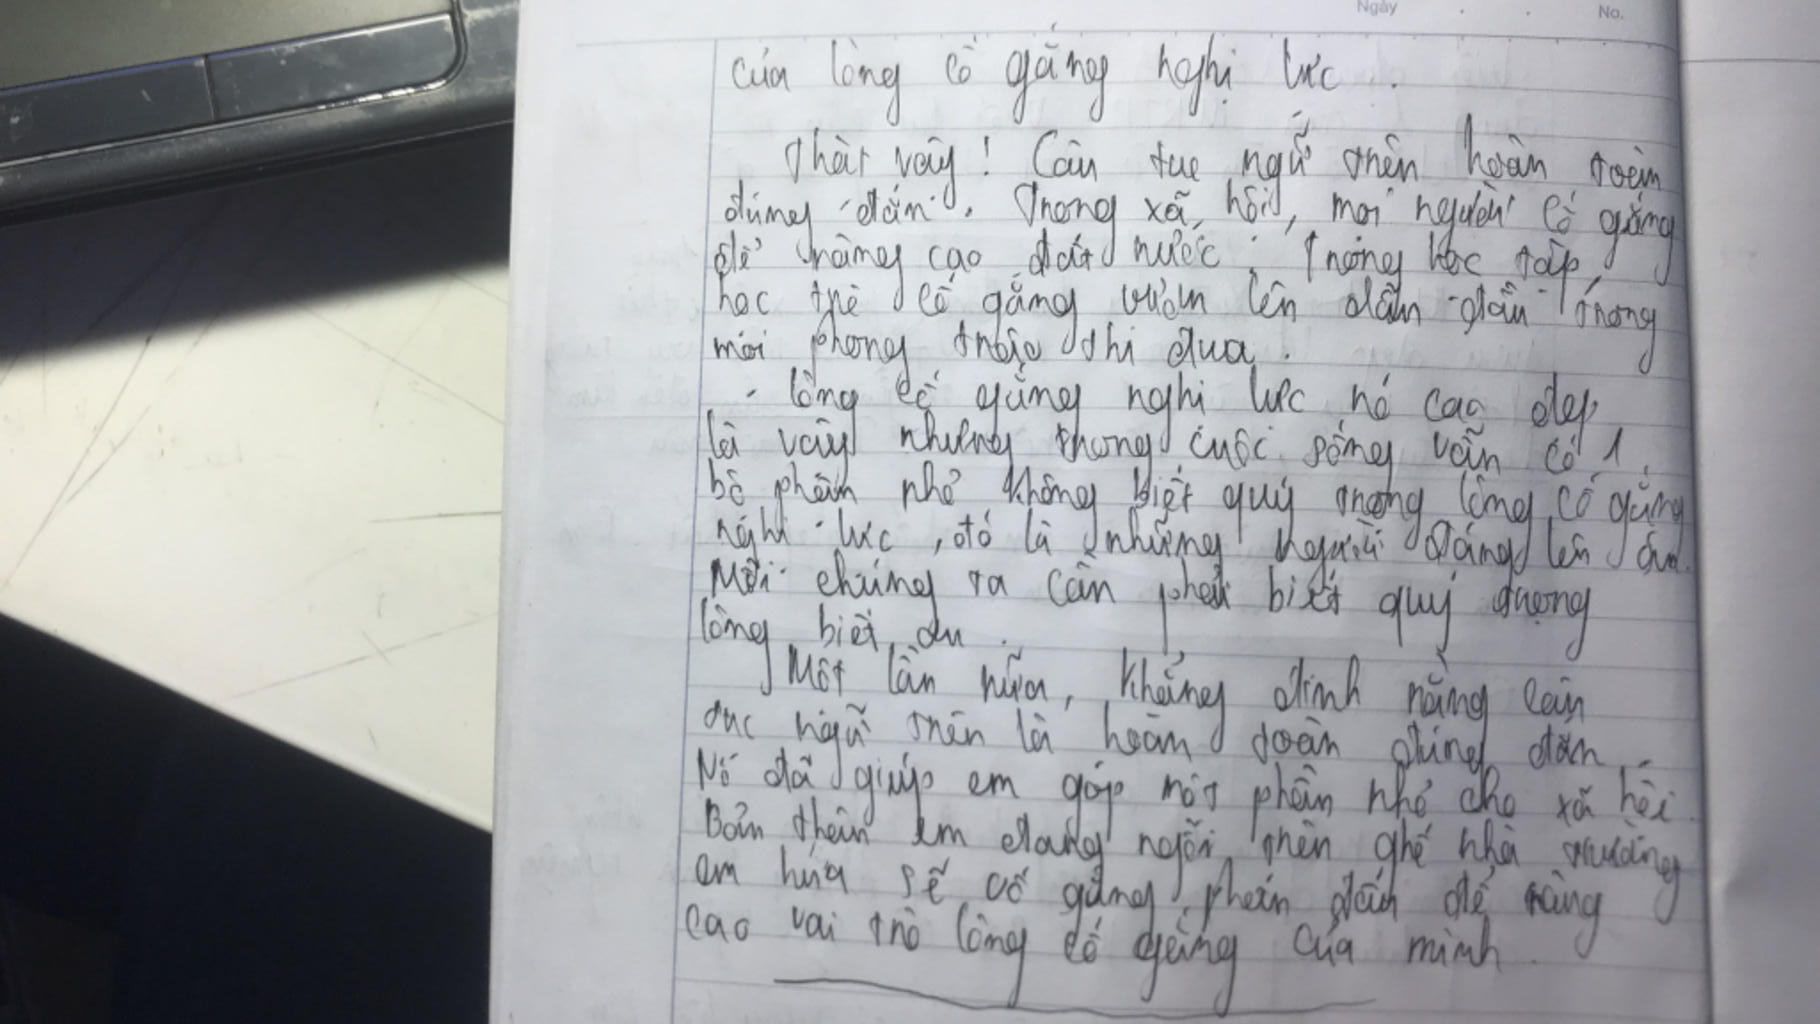 Ngày No.
của lòng cố gắng nghị lực.
Thật vậy! Câu tục ngữ trên hoàn toàn
đúng đắn. Trong xã hội, mọi người cố gắng
để nâng cao đất nước. Trong học tập,
học trò cố gắng vươn lên dẫn đầu trong
mọi phong trào thi đua.
- lòng cố gắng nghị lực nó cao đẹp
là vậy nhưng trong cuộc sống vẫn có 1
bộ phận nhỏ không biết quý trọng lòng cố gắng
nghị lực, đó là những người đáng lên án.
Mỗi chúng ta cần phải biết quý trọng
lòng biết ơn.
Một lần nữa, khẳng định rằng câu
tục ngữ trên là hoàn toàn đúng đắn.
Nó đã giúp em góp một phần nhỏ cho xã hội.
Bản thân em đang ngồi trên ghế nhà trường
em hứa sẽ cố gắng phấn đấu để nâng
cao vai trò lòng cố gắng của mình.